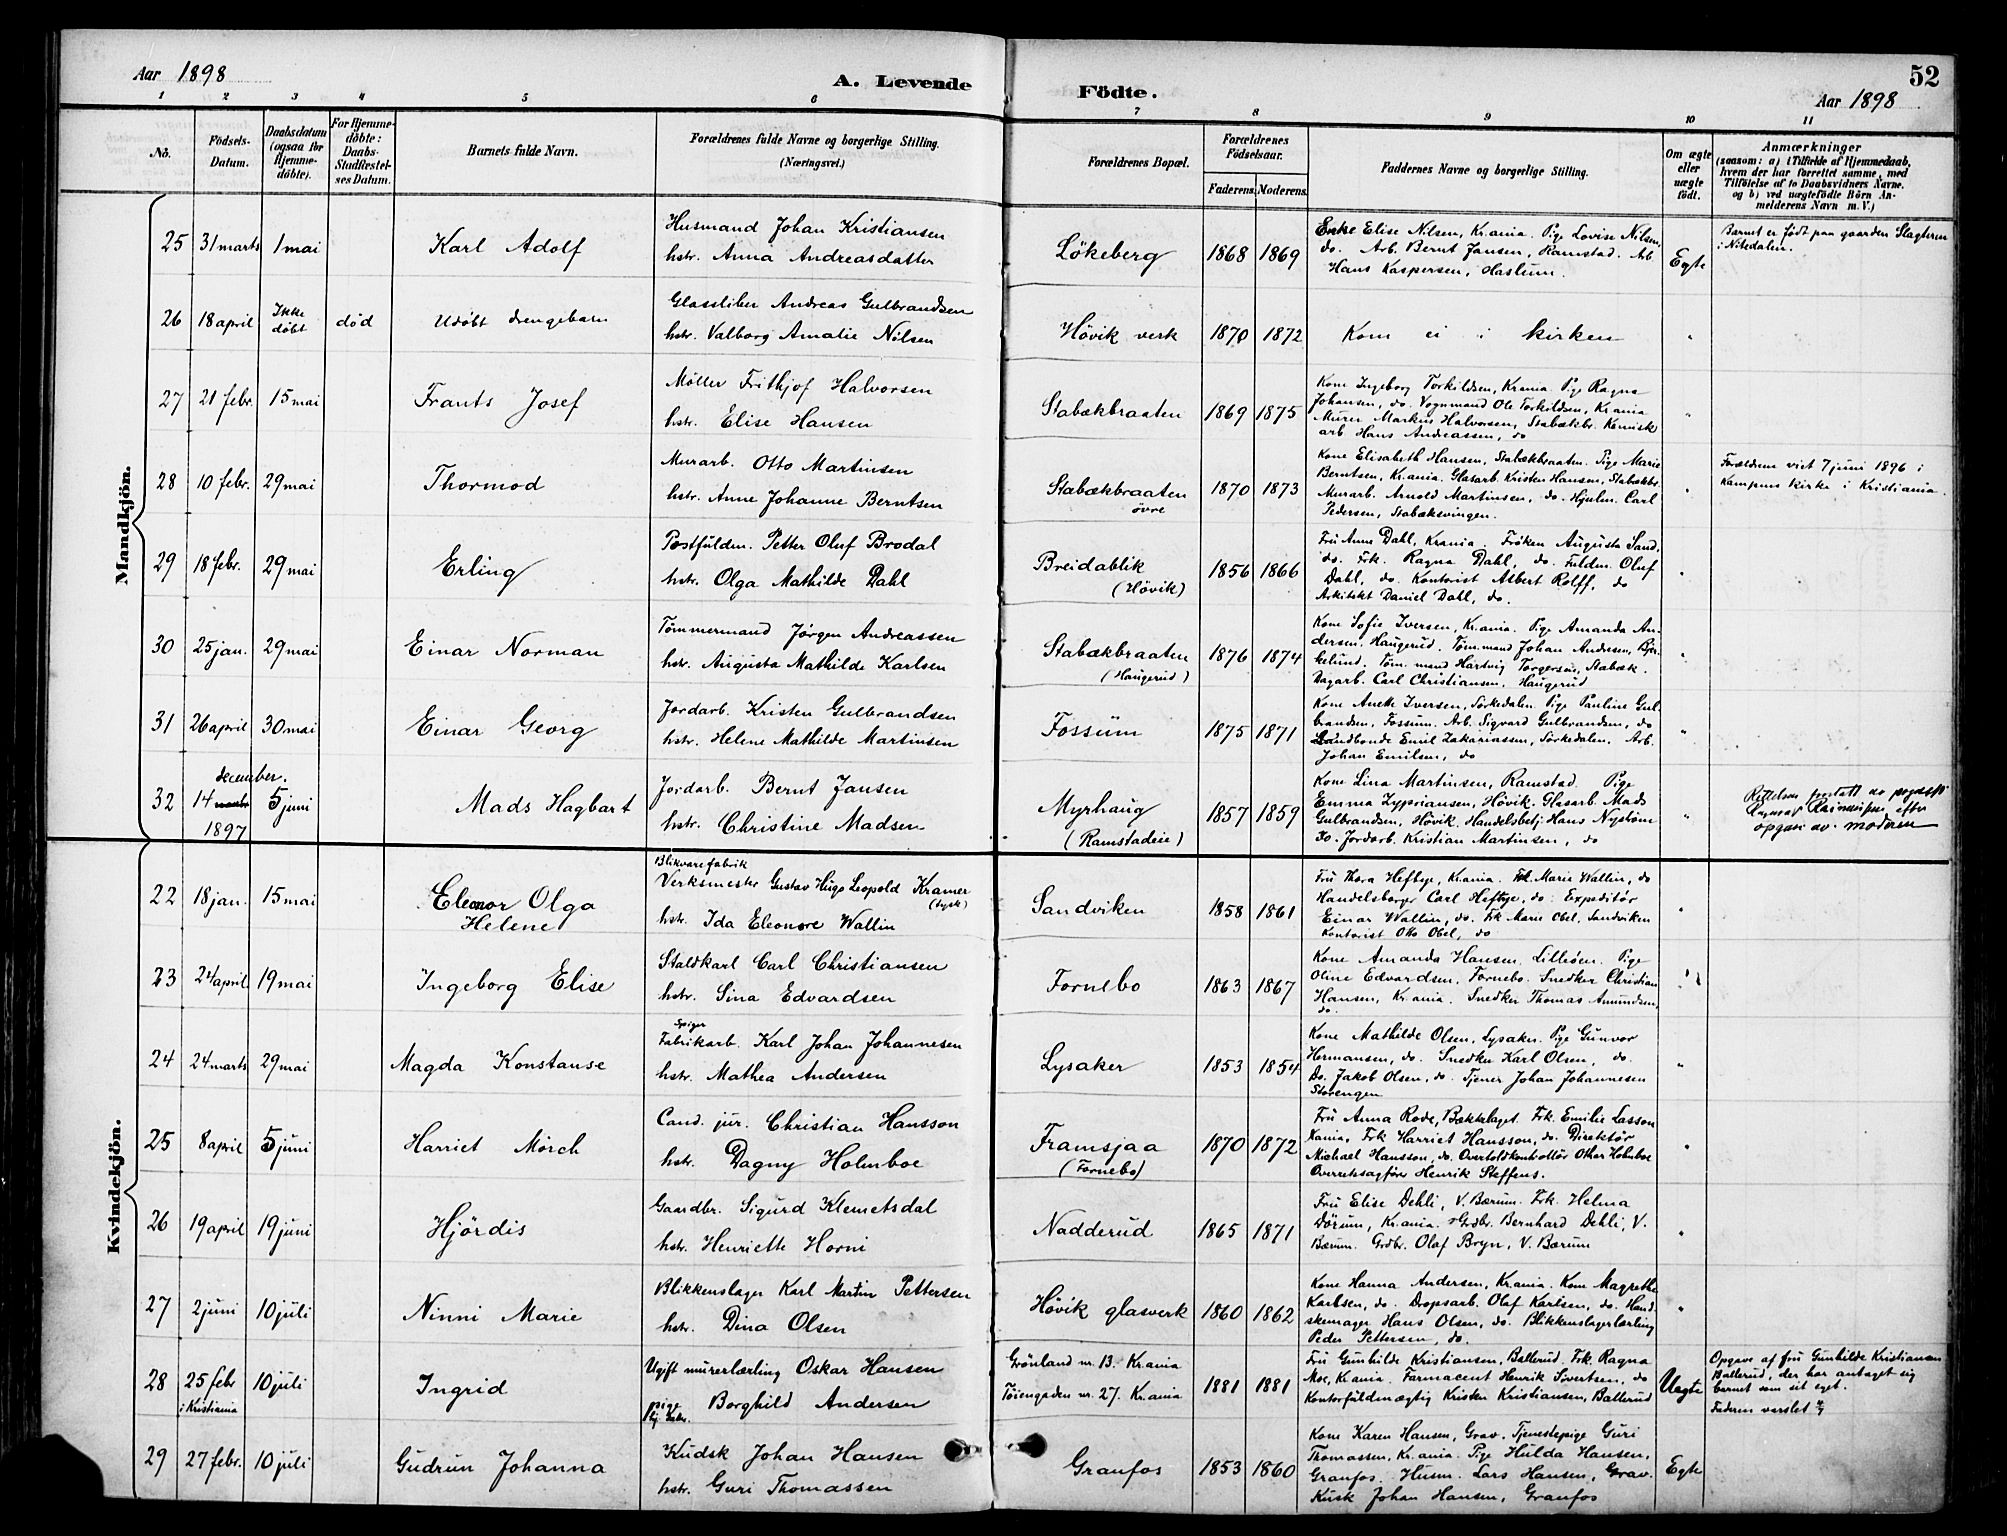 Aar 1898
A. Levende Födte.
52
Aar 1898
1 2 3 4 5 6 7 8 9 10 11
No.
Födsels-Datum.
Daabsdatum (ogsaa for Hjemme-döbte).
For Hjemme-döbte: Daabs-Stadfæstel-ses Datum.
Barnets fulde Navn.
Forældrenes fulde Navne og borgerlige Stilling.
(Næringsvei.)
Forældrenes Bopæl.
Forældrenes Födselsaar.
Faderens. Moderens.
Faddernes Navne og borgerlige Stilling.
Om ægte eller uægte födt.
Anmærkninger
(saasom: a) i Tilfælde af Hjemmedaab,
hvem der har forrettet samme, med
Tilföielse af to Daabsvidners Navne.
og b) ved uægtefödte Börn An-
melderens Navn m. V.)
Mandkjön.
25 31 marts 1 mai
Karl Adolf
Husmand Johan Kristiansen
hstr. Anna Andreasdatter
Lökeberg
1868 1869
Enke Elise Nilsen, Kr.ania. Pige Lovise Nilsen,
do. Arb. Bernt Jansen, Ramstad. Arb
Hans Kaspersen, Haslum.
Egte
Barnet er födt paa gaarden Slagteren
i Nitedalen.
26 18 april Ikke döbt död
Udöbt drengebarn
Glassliber Andreas Gulbrandsen
hstr. Valborg Amalie Nilsen
Hövik verk
1870 1872
Kom ei i kirken
"
27 21 febr. 15 mai
Frants Josef
Möller Frithjof Halvorsen
hstr. Elise Hansen
Stabækbraaten
1869 1875
Kone Ingeborg Torkildsen, Kr.ania. Pige Ragna
Johansen, do. Vognmand Ole Torkildsen, Kr.ania
Murer Markus Halvorsen, Stabækbr. Kemisk
arb. Hans Andreassen, do
"
28 10 febr. 29 mai
Thormod
Murarb. Otto Martinsen
hstr. Anne Johanne Berntsen
Stabækbraaten
övre
1870 1873
Kone Elisabeth Hansen, Stabækbraaten. Pige Marie
Berntsen, Kr.ania. Glasarb. Kristen Hansen, Stabækbr.
Murarb. Arnold Martinsen, do. Hjulm. Carl
Pedersen, Stabæksvingen.
"
Forældrene viet 7 juni 1896 i
Kampens kirke i Kristiania.
29 18 febr. 29 mai
Erling
Postfuldm. Petter Oluf Brodal
hstr. Olga Mathilde Dahl
Breidablik
(Hövik)
1856 1866
Fru Anna Dahl, Kr.ania. Fröken Augusta Sand,
do. Frk. Ragna Dahl, do. Fuldm. Oluf
Dahl, do. Kontorist Albert Rolff, do
Arkitekt Daniel Dahl, do.
"
30 25 jan. 29 mai
Einar Norman
Tömmermand Jörgen Andreassen
hstr. Augusta Mathilde Karlsen
Stabækbraaten
(Haugerud)
1876 1874
Kone Sofie Iversen, Kr.ania. Pige Amanda An-
dersen, Haugerud. Töm.mand Johan Andresen, Bjer-
kelund. Töm.mand Hartvig Torgersen, Stabæk.
Dagarb. Carl Christiansen, Haugerud
"
31 26 april 30 mai
Einar Georg
Jordarb. Kristen Gulbrandsen
hstr. Helene Mathilde Martinsen
Fossum
1875 1871
Kone Anette Iversen, Sörkedalen. Pige Pauline Gul-
brandsen, Fossum. Arb. Sigvard Gulbrandsen, do
Landbonde Emil Zakariassen, Sörkedalen. Arb.
Johan Emilsen, do
"
december.
32 14 5 juni
1897
Mads Hagbart
Jordarb. Bernt Jansen
hstr. Christine Madsen
Myrhaug
(Ramstadeie)
1857 1859
Kone Lina Martinsen, Ramstad. Pige
Emma Zypriansen, Hövik. Glasarb. Mads
Gulbrandsen, Hövik. Handelsbetj. Hans Nyström
do. Jordarb. Kristian Martinsen, do
"
Rettelsen foretatt av
efter
opgave av moderen
Kvindekjön.
22 18 jan. 15 mai
Eleonor Olga
Helene
Blikvarefabrik
Verksmester Gustav Hugo Leopold Kramer
(tysk)
hstr. Ida Eleonore Wallin
Sandviken
1858 1861
Fru Thora Heftye, Kr.ania. Frk. Marie Wallin, do
Handelsborger Carl Heftye, do. Expeditör
Einar Wallin, do. Frk Marie Obel, Sandviken
Kontorist Otto Obel, do
"
23 24 april 19 mai
Ingeborg Elise
Staldkarl Carl Christiansen
hstr. Sina Edvardsen
Fornebo
1863 1867
Kone Amanda Hansen, Lilleöen. Pige
Oline Edvardsen, Fornebo. Snedker Christian
Hansen, Kr.ania. Snedker Thomas Amundsen,
do.
"
24 24 marts 29 mai
Magda Konstanse
Spiger
Fabrikarb. Karl Johan Johannesen
hstr. Mathea Andersen
Lysaker
1853 1854
Kone Mathilde Olsen, Lysaker. Pige Gunvor
Hermansen, do. Snedker Karl Olsen, do.
Do. Jakob Olsen, do. Tjener Johan Johannesen
Storengen
"
25 8 april 5 juni
Harriet Mörch
Cand. jur. Christian Hansson
hstr. Dagny Holmboe
Framsjaa
(Fornebo)
1870 1872
Fru Anna Rode, Bækkelaget. Frk. Emilie Lasson
Kania. Frk Harriet Hansson, do. Direktör
Michael Hansson, do. Overtoldkontrollör Othar Holmboe
Overretssagförer Henrik Steffens.
"
26 19 april 19 juni
Hjördis
Gaardbr. Sigurd Klemetsdal
hstr. Henriette Horni
Nadderud
1865 1871
Fru Elise Dehli, V. Bærum. Frk. Helma
Dörum, Kr.ania. Grdbr. Bernhard Dehli, V.
Bærum. Grdbr. Olaf Bryn, V. Bærum
"
27 2 juni 10 juli
Ninni Marie
Blikkenslager Karl Martin Pettersen
hstr. Dina Olsen
Hövik glasverk
1860 1862
Kone Hanna Andersen, Kr.ania. Kone Magrethe
Karlsen, do. Dropsarb. Olaf Karlsen, do. Hand-
skemager Hans Olsen, do. Blikkenslagerlærling
Peder Pettersen, do.
"
28 25 febr 10 juli
i Kristiania
Ingrid
Ugift murerlærling Oskar Hansen
pige Borghild Andersen
Grönland nr. 13. Kr.ania
Töiengaden nr. 27. Kr.ania
1881 1881
Fru Gunhilde Kristiansen, Ballerud. Frk. Ragna
Moe, Kr.ania. Farmaceut Henrik Sivertsen, do
Kontorfuldmægtig Kristen Kristiansen, Ballerud
Uegte
Opgave af fru Gunhilde Kristiansen
Ballerud, der har antaget sig
barnet som sit eget.
Faderen varslet
29 27 febr. 10 juli
Gudrun Johanna
Kudsk Johan Hansen
hstr. Guri Thomassen
Granfos
1853 1860
Kone Karen Hansen, Grav. Tjenestepige Guri
Thomassen, Kr.ania. Pige Hulda Hansen,
Granfos. Husm. Lars Hansen, Grav.
Kusk Johan Hansen, Granfos
Egte